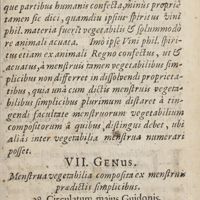 que partibus humanis confecta, minus propriè
tamen sic dici, quamdiu ipsius spiritus vini
phil. materia fuerit vegetabilis & solummodo
re animali acuata. Imò ipse Vini phil. spiri-
tus etiam ex animali Regno confectus, ut &
acuatus, à menstruis tamen vegetabilibus sim-
plicibus non differret in dissolvendi proprieta-
tibus, quia unà cum dictis menstruis vegeta-
bilibus simplicibus plurimum distaret à tin-
gendi facultate menstruorum vegetabilium
compositorum à quibus distingui debet, ubi
aliàs inter vegetabilia menstrua numerari
posset.
VII. GENUS.
Menstrua vegetabilia composita ex menstruis
prædictis simplicibus.
28. Circulatum majus Guidonis.